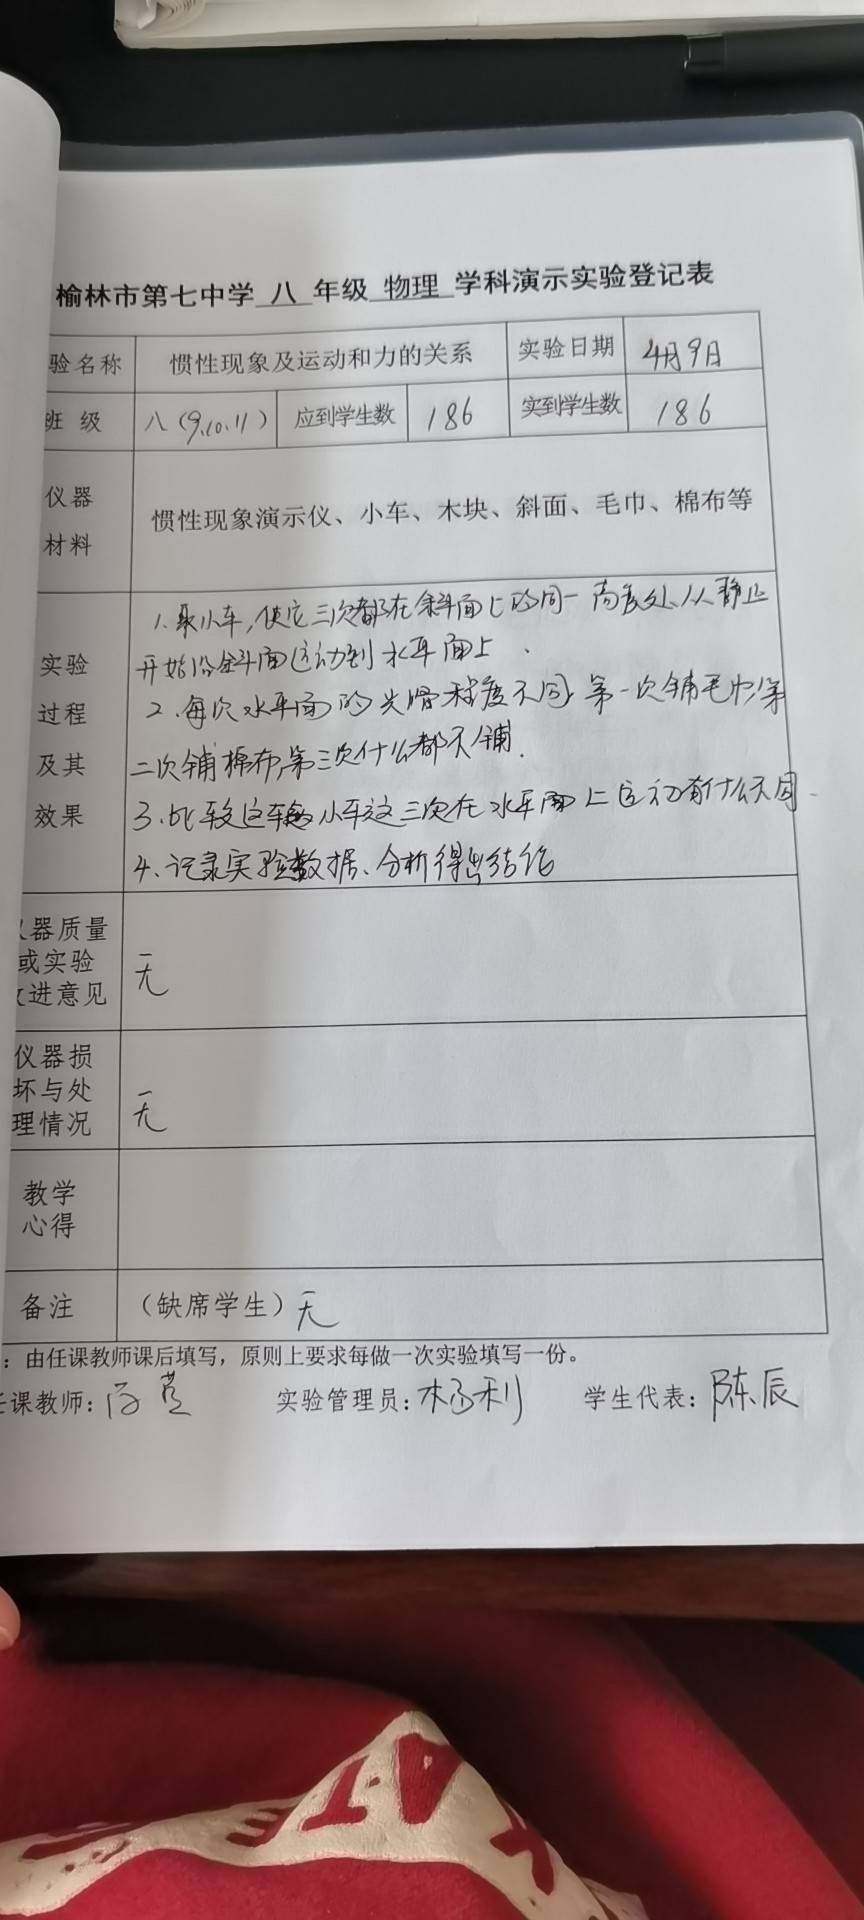 榆林市第七中学 八 年级 物理 学科演示实验登记表
验名称 惯性现象及运动和力的关系 实验日期 4月9日
班 级 八(9.10.11) 应到学生数 186 实到学生数 186
仪器
材料
惯性现象演示仪、小车、木块、斜面、毛巾、棉布等
实验
过程
及其
效果
1.取小车,使它三次都在斜面上的同一高度处从静止
开始沿斜面运动到水平面上.
2.每次水平面的光滑程度不同,第一次铺毛巾,第
二次铺棉布,第三次什么都不铺.
3.比较这辆小车这三次在水平面上运动有什么不同.
4.记录实验数据、分析得出结论
器质量
或实验
进意见
无
仪器损
坏与处
理情况
无
教学
心得
备注 (缺席学生)无
:由任课教师课后填写,原则上要求每做一次实验填写一份。
课教师: 实验管理员:杨利 学生代表:陈辰
ATE